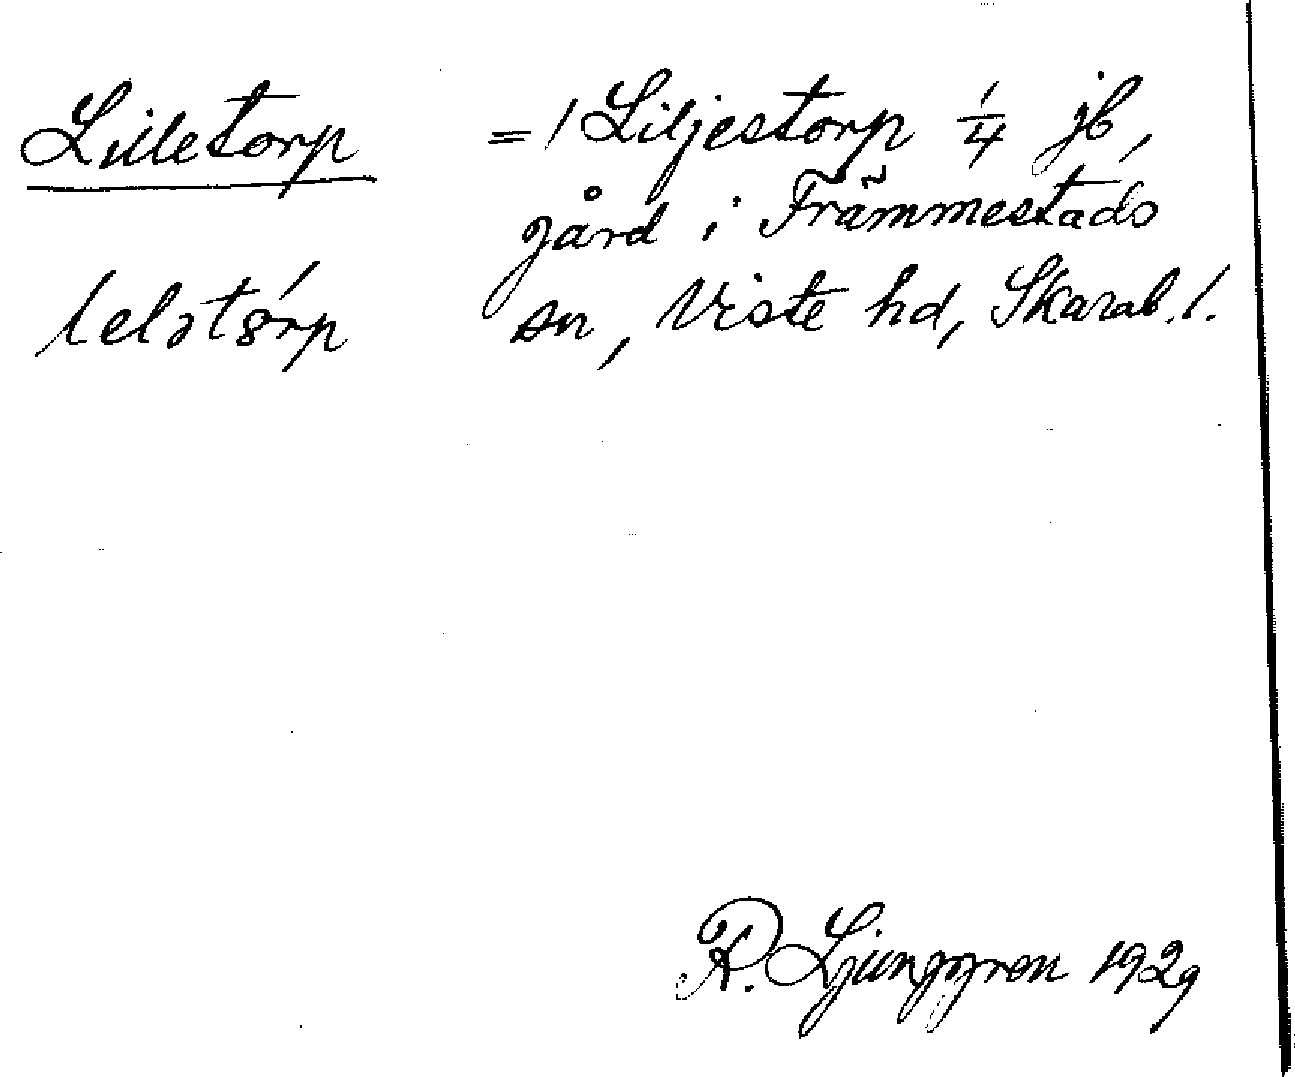 Lilletorp = / Liljestorp 1/4 jb,
gård i Främmestads
lelətörp sn, Viste hd, Skarab. l.
R. Ljunggren 1929